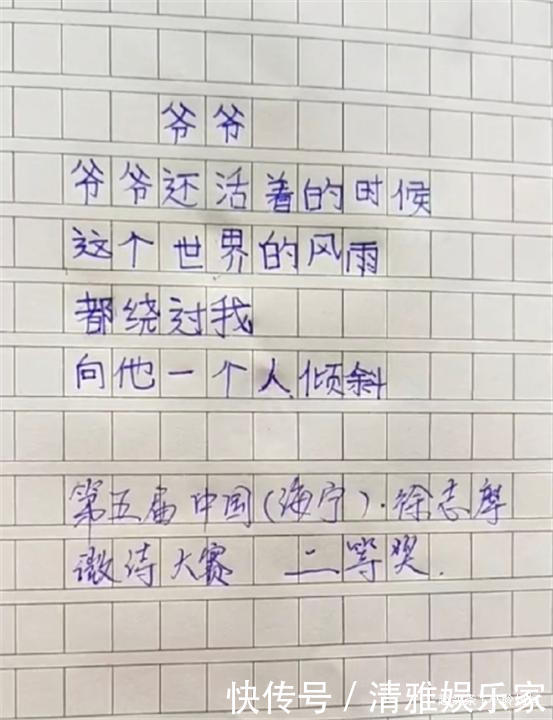 爷爷
爷爷还活着的时候
这个世界的风雨
都绕过我
向他一个人倾斜
第五届中国(海宁)·徐志摩
微诗大赛 二等奖.
快传号/清雅娱乐家